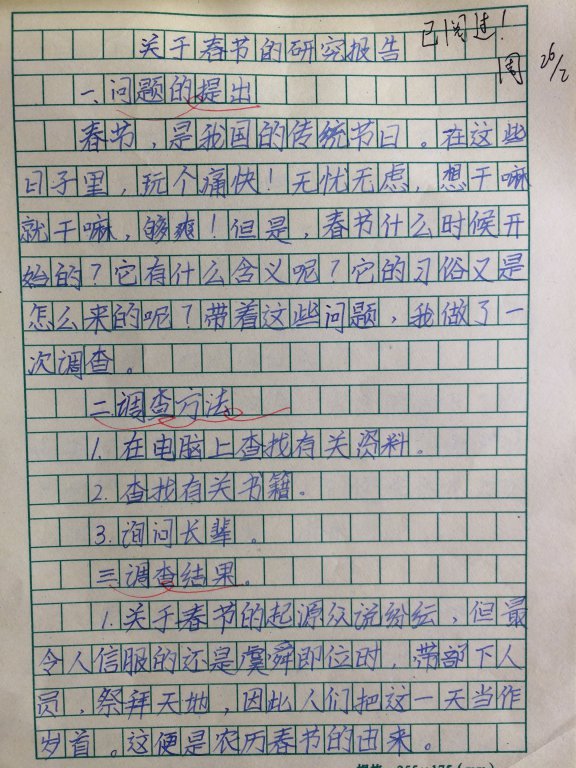 关于春节的研究报告
已阅过！
周 26/2
一、问题的提出
春节，是我国的传统节日。在这些
日子里，玩个痛快！无忧无虑，想干嘛
就干嘛，够爽！但是，春节什么时候开
始的？它有什么含义呢？它的习俗又是
怎么来的呢？带着这些问题，我做了一
次调查。
二调查方法。
1.在电脑上查找有关资料。
2.查找有关书籍。
3.询问长辈。
三调查结果。
1.关于春节的起源众说纷纭，但最
令人信服的还是虞舜即位时，带部下人
员，祭拜天地，因此人们把这一天当作
岁首。这便是农历春节的由来。